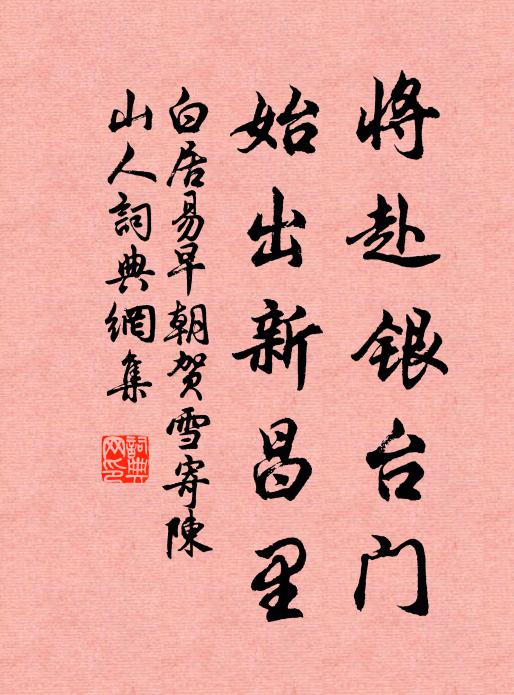 将赴银台门
始出新昌里
白居易早朝贺雪寄陳
山人詞典網集
詞典
网印